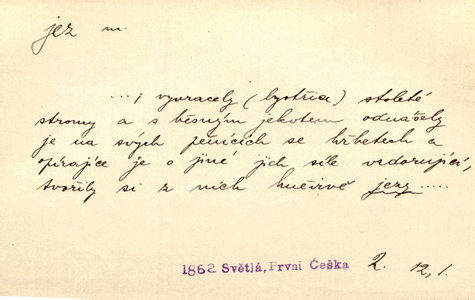 jez m.
...; vyvracely (bystřice) stoleté
stromy a s běsným jekotem odnášely
je na svých pěnících se hřbetech a
opírajíce je o jiné jich síle vzdorující,
tvořily si z nich hučivé jezy.....
1862 Světlá, První Češka 2. 12, 1.